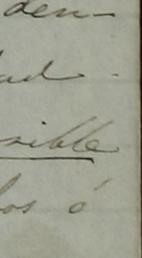 den-
dad -
sible
los ó